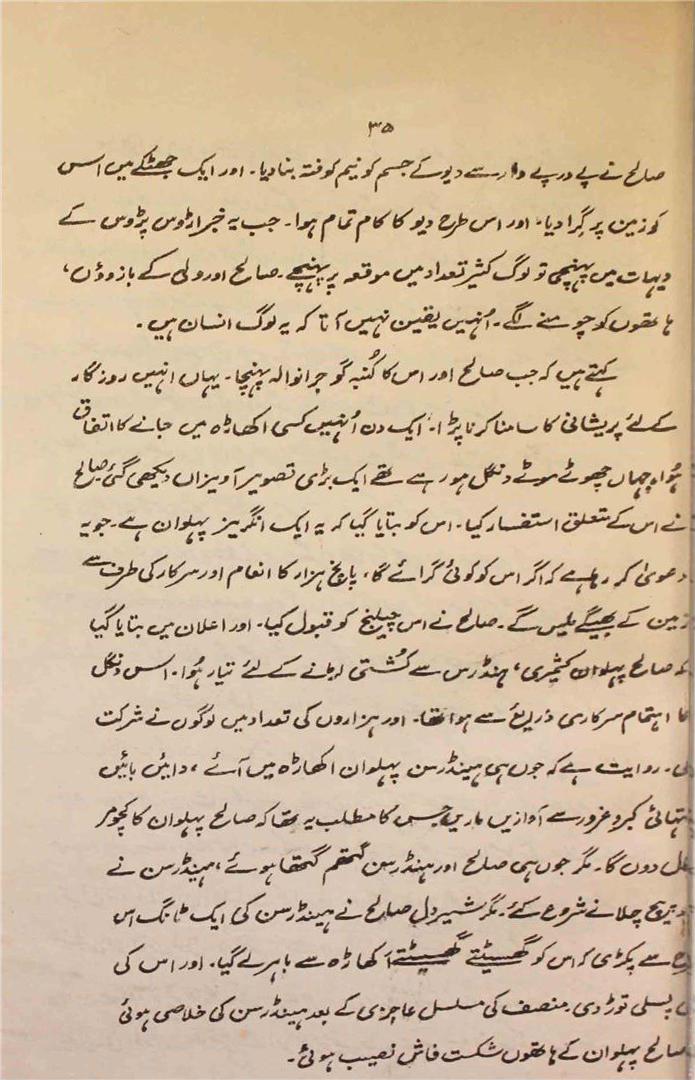 ۳۵
صالح نے پے درپے وار سے دیو کے جسم کو نیم کوفتہ بنا دیا۔ اور ایک جھٹکے میں اس
کو زمین پر گرا دیا۔ اور اس طرح دیو کا کام تمام ہوا۔ جب یہ خبر اڑوس پڑوس کے
دیہات میں پہنچی تو لوگ کثیر تعداد میں موقعہ پر پہنچے۔ صالح اور ولی کے بازوؤں،
ہاتھوں کو چومنے لگے۔ اُنہیں یقین نہیں آتا کہ یہ لوگ انسان ہیں۔
کہتے ہیں کہ جب صالح اور اس کا کُنبہ گوجرانوالہ پہنچا۔ یہاں انہیں روزگار
کے لئے پریشانی کا سامنا کرنا پڑا۔ ایک دن اُنہیں کسی اکھاڑہ میں جانے کا اتفاق
ہُوا، جہاں چھوٹے موٹے دنگل ہو رہے تھے ایک بڑی تصویر آویزاں دیکھی گئی صالح
نے اس کے متعلق استفسار کیا۔ اس کو بتایا گیا کہ یہ ایک انگریز پہلوان ہے۔ جو یہ
دعویٰ کر رہا ہے کہ اگر اس کو کوئی گرائے گا، پانچ ہزار کا انعام اور سرکار کی طرف سے
زمین کے بھیگے ملیں گے۔ صالح نے اس چیلنج کو قبول کیا۔ اور اعلان میں بتایا گیا
کہ صالح پہلوان کشمیری، ہنڈرس سے کُشتی لڑنے کے لئے تیار ہُوا۔ اس دنگل
کا اہتمام سرکاری ذریعے سے ہوا تھا۔ اور ہزاروں کی تعداد میں لوگوں نے شرکت
کی۔ روایت ہے کہ جوں ہی ہینڈرسن پہلوان اکھاڑہ میں آئے، دائیں بائیں
انتہائی کبر و غرور سے آوازیں ماریں جس کا مطلب یہ تھا کہ صالح پہلوان کا کچومر
دوں گا۔ مگر جوں ہی صالح اور ہینڈرسن گتھم گتھا ہوئے، ہینڈرسن نے
پیچ چلانے شروع کئے۔ مگر شیردل صالح نے ہینڈرسن کی ایک ٹانگ اس
طرح سے پکڑی کہ اس کو گھسیٹتے گھسیٹتے اکھاڑہ سے باہر لے گیا۔ اور اس کی
پسلی توڑ دی۔ منصف کی مسلسل عاجزی کے بعد ہینڈرسن کی خلاصی ہوئی
صالح پہلوان کے ہاتھوں شکست فاش نصیب ہوئی۔